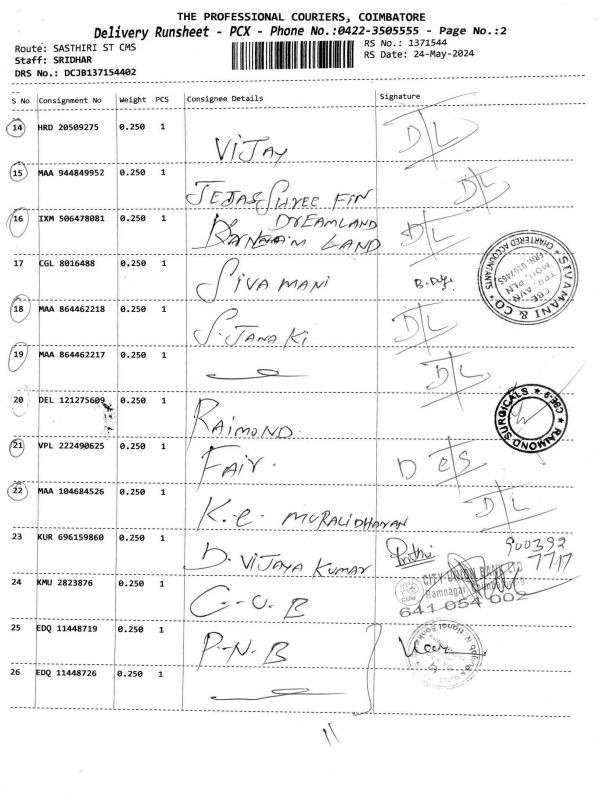 THE PROFESSIONAL COURIERS, COIMBATORE
Delivery Runsheet - PCX - Phone No.:0422-3505555 - Page No.:2
Route: SASTHIRI ST CMS
RS No.: 1371544
Staff: SRIDHAR
RS Date: 24-May-2024
DRS No.: DCJB137154402
S No Consignment No Weight PCS Consignee Details Signature
14 HRD 20509275 0.250 1 VIJAY D/L
15 MAA 944849952 0.250 1 TEJAS SHREE FIN D/L
16 IXM 506478081 0.250 1 DREAMLAND LAND D/L
17 CGL 8016488 0.250 1 SIVA MANI
SIVAMANI & CO
CHARTERED ACCOUNTANTS
18 MAA 864462218 0.250 1 S. JANAKI D/L
19 MAA 864462217 0.250 1 D/L
20 DEL 121275609 0.250 1 RAIMOND
RAIMOND SURGICALS ★ CBE-9 ★
21 VPL 222490625 0.250 1 FAIR
22 MAA 104684526 0.250 1 K.C. MURALIDHARAN D/L
23 KUR 696159860 0.250 1 D. VIJAYA KUMAR Prithi 900392
7717
24 KMU 2823876 0.250 1 C-U-B
CITY UNION BANK LTD
Ramnagar,
641 054 002
25 EDQ 11448719 0.250 1 P-N-B
26 EDQ 11448726 0.250 1
11